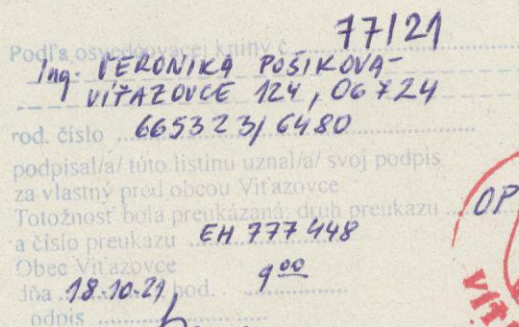 Podľa osvedčovacej knihy č. 77/21
Ing. VERONIKA POŠIKOVÁ-
VÍŤAZOVCE 124, 06724
rod. číslo 665323/6480
podpísal/a/ túto listinu uznal/a/ svoj podpis
za vlastný pred obcou Víťazovce
Totožnosť bola preukázaná: druh preukazu OP
a číslo preukazu EH 777448
Obec Víťazovce
dňa 18.10.21, hod. 9⁰⁰
odpis